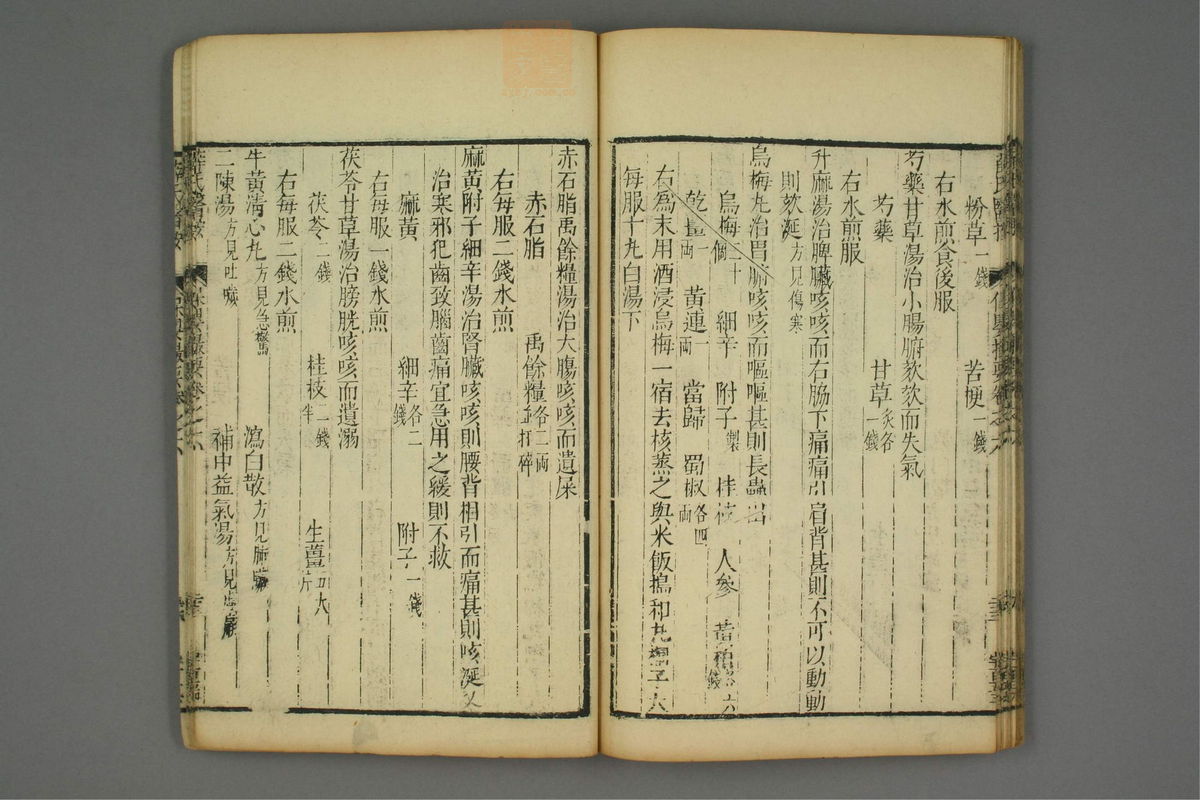 粉草一錢 苦梗一錢
右水煎食後服
芍藥甘草湯治小腸腑欬欬而失氣
芍藥 甘草炙各一錢
右水煎服
升麻湯治脾臟咳咳而右脇下痛痛引肩背甚則不可以動動
則欬涎方見傷寒
烏梅丸治胃腑咳咳而嘔嘔甚則長蟲出
烏梅三十個 細辛 附子製 桂枝 人參 黃栢各六錢
乾薑一兩 黃連一兩 當歸 蜀椒各四兩
右為末用酒浸烏梅一宿去核蒸之與米飯搗和丸桐子大
每服十丸白湯下
赤石脂禹餘糧湯治大腸咳咳而遺屎
赤石脂 禹餘糧各二兩並打碎
右每服二錢水煎
麻黃附子細辛湯治腎臟咳咳則腰背相引而痛甚則咳涎又
治寒邪犯齒致腦齒痛宜急用之緩則不救
麻黃 細辛各二錢 附子一錢
右每服一錢水煎
茯苓甘草湯治膀胱咳咳而遺溺
茯苓二錢 桂枝二錢半 生薑五大片
右每服二錢水煎
牛黃清心丸方見急驚 瀉白散方見肺臟
二陳湯方見吐瀉 補中益氣湯方見
薛氏醫按 保嬰撮要卷之六